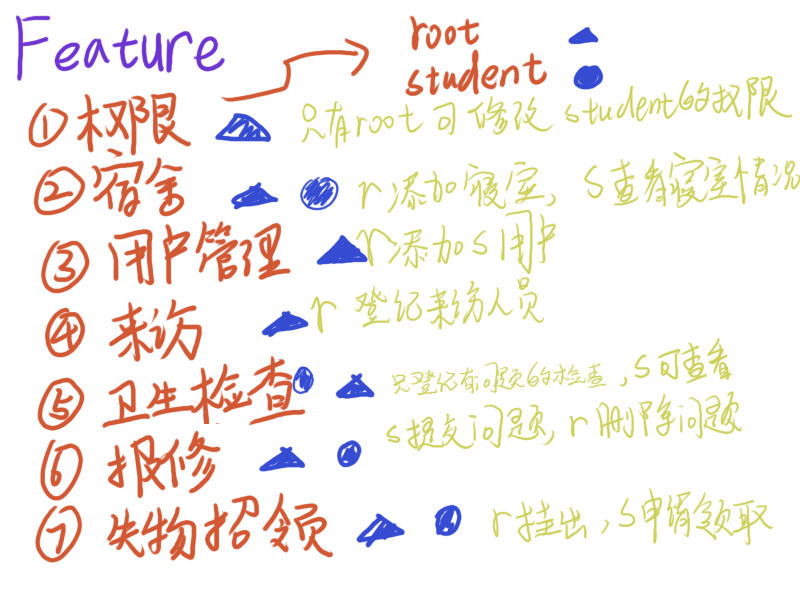 Feature
root
student
①权限 只有root可修改student的权限
②宿舍 r添加寝室，S查看寝室情况
③用户管理 r添加s用户
④来访 r登记来访人员
⑤卫生检查 只登记有问题的检查，s可查看
⑥报修 s提交问题，r删除问题
⑦失物招领 r挂出，S申请领取